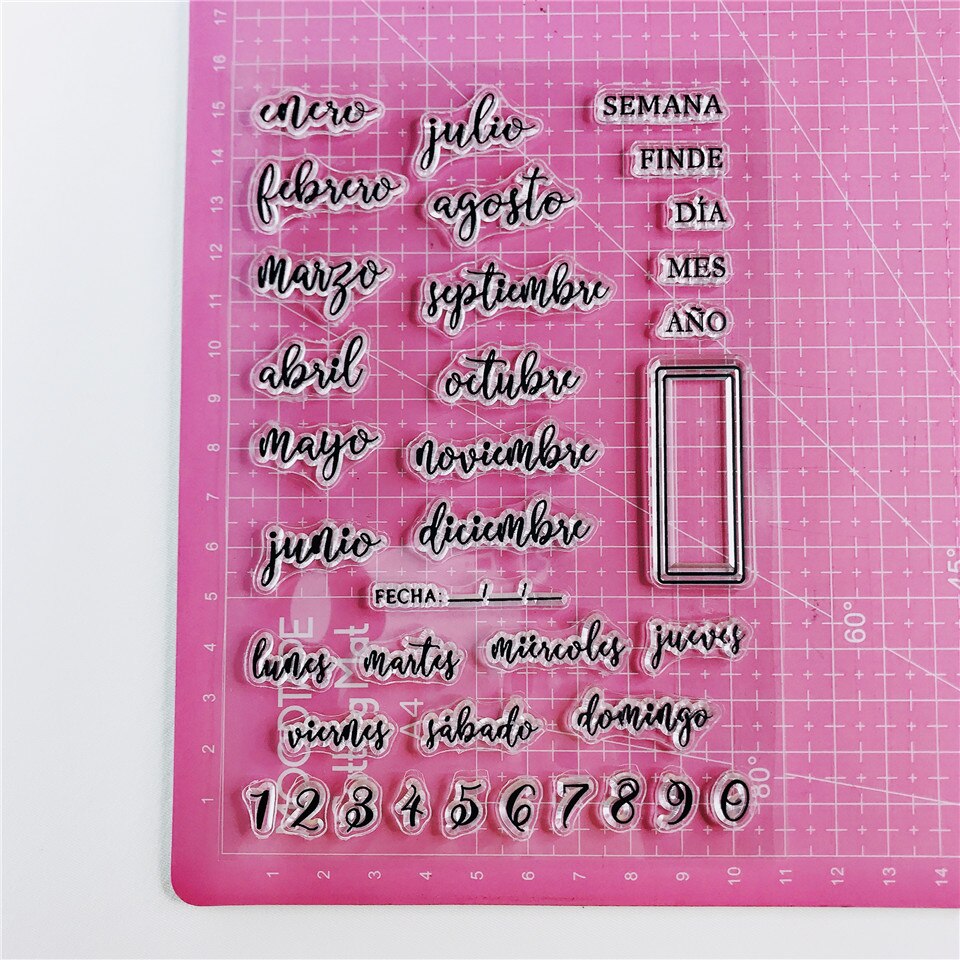 enero
febrero
marzo
abril
mayo
junio
julio
agosto
septiembre
octubre
noviembre
diciembre
SEMANA
FINDE
DÍA
MES
AÑO
FECHA: __/__/__
lunes martes miércoles jueves
viernes sábado domingo
1 2 3 4 5 6 7 8 9 0
17
16
15
14
13
12
11
10
9
8
7
6
5
4
3
2
1
1 2 3 4 5 6 7 8 9 10 11 12 13 14
45°
60°
80°
Mat